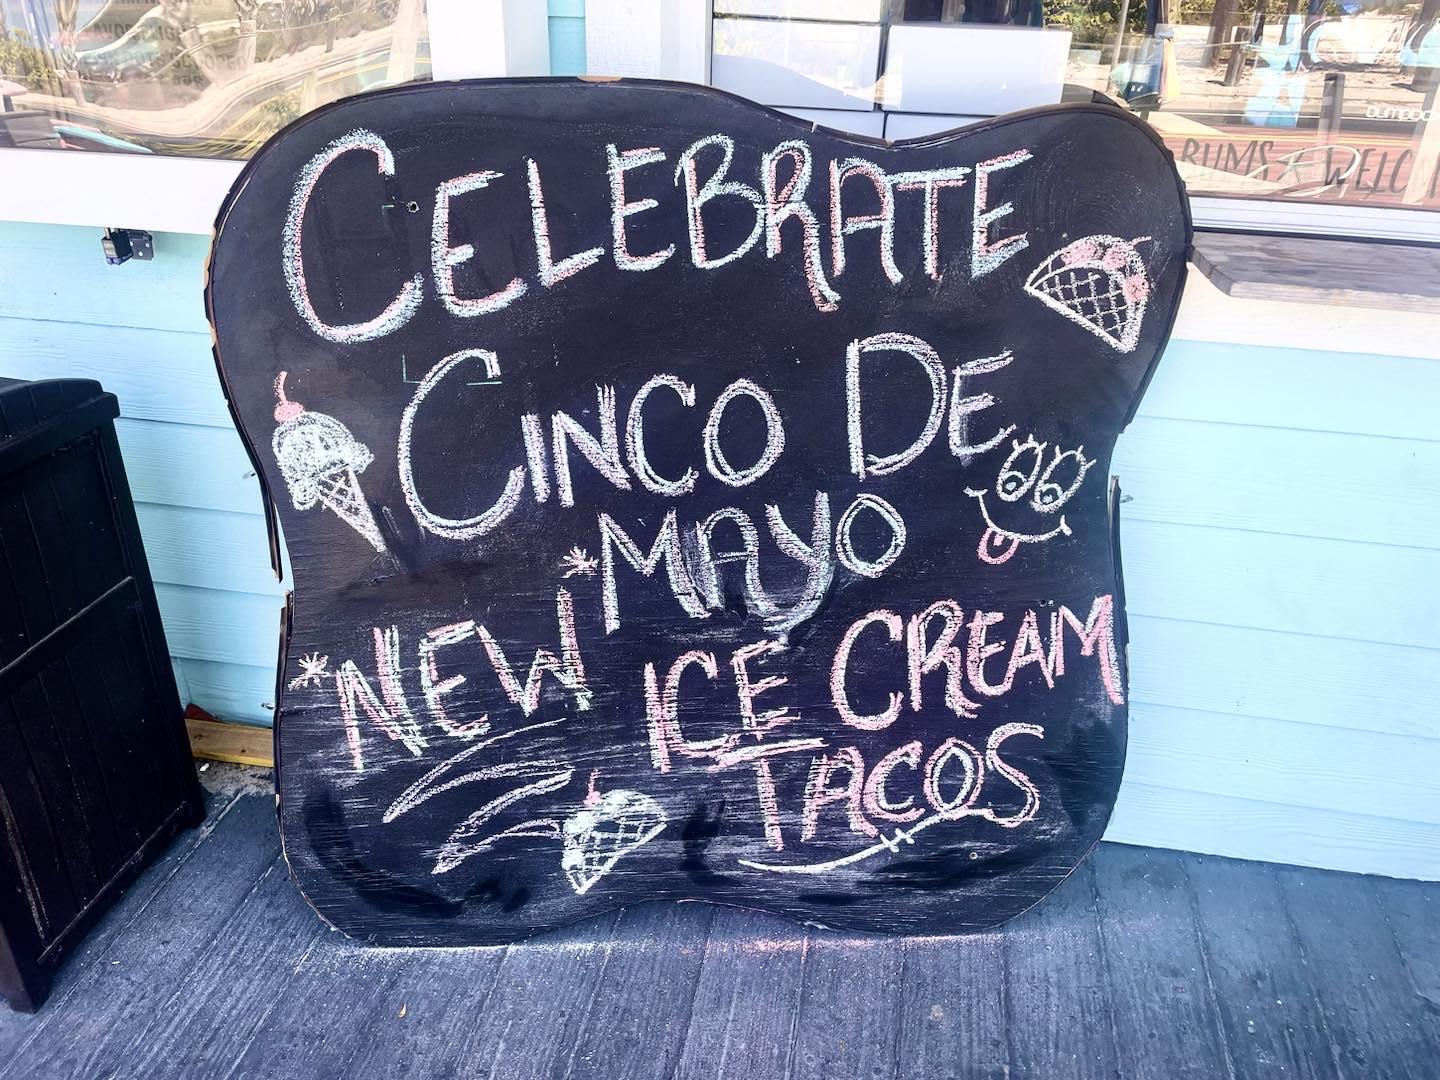 CELEBRATE
CINCO DE
MAYO
*NEW* ICE CREAM
TACOS
BUMS WELCO